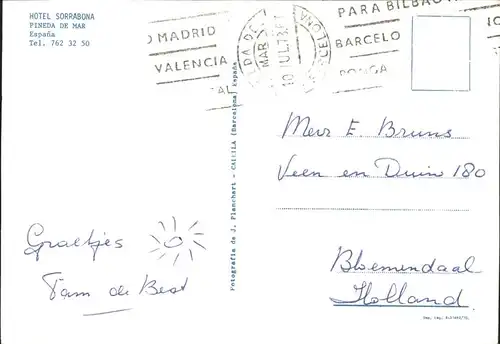 HOTEL SORRABONA
PINEDA DE MAR
España
Tel. 762 32 50
MADRID
VALENCIA
PARA BILBAO
BARCELO
Mevr E. Bruns
Veen en Duin 180
Bloemendaal
Holland
Groetjes
Tom de Best
Fotografía de J. Planchart - CALELLA (Barcelona) España